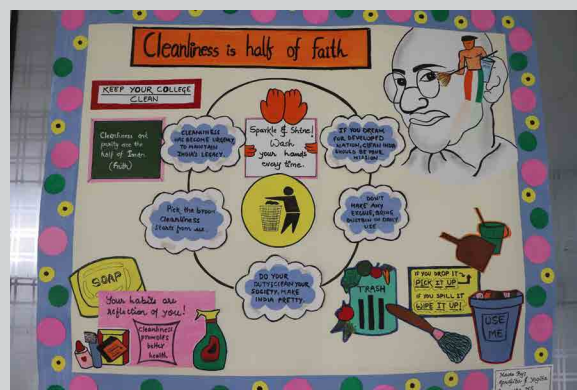 Cleanliness is half of faith
KEEP YOUR COLLEGE
CLEAN
Cleanliness and
purity are the
half of Iman
(Faith)
CLEANINESS
HAS BECOME URGENT
TO MAINTAIN
INDIA'S LEGACY.
Sparkle & Shine!
Wash
your hands
every time.
IF YOU DREAM
FOR DEVELOPED
NATION, CLEAN INDIA
SHOULD BE YOUR
MISSION
Pick the broom
Cleanliness
starts from us.
DON'T
MAKE ANY
EXCUSE, BRING
DUSTBIN IN DAILY
USE
DO YOUR
DUTY, CLEAN YOUR
SOCIETY, MAKE
INDIA PRETTY.
SOAP
Your habits are
reflection of you!
Cleanliness
promotes
better
health
TRASH
IF YOU DROP IT
PICK IT UP
IF YOU SPILL IT
WIPE IT UP!
USE
ME